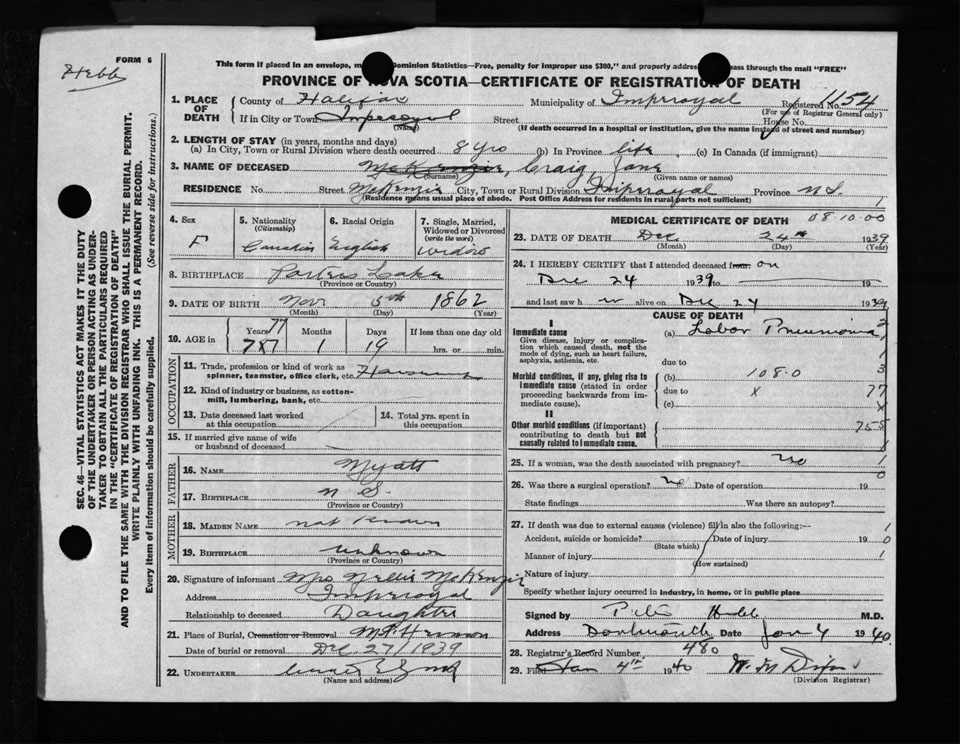 Hebb
FORM 6
This form if placed in an envelope, Dominion Statistics—Free, penalty for improper use $300," and properly pass through the mail "FREE"
PROVINCE OF NOVA SCOTIA—CERTIFICATE OF REGISTRATION OF DEATH
SEC. 46—VITAL STATISTICS ACT MAKES IT THE DUTY
OF THE UNDERTAKER OR PERSON ACTING AS UNDER-
TAKER TO OBTAIN ALL THE PARTICULARS REQUIRED
IN THE "CERTIFICATE OF REGISTRATION OF DEATH"
AND TO FILE THE SAME WITH THE DIVISION REGISTRAR WHO SHALL ISSUE THE BURIAL PERMIT.
WRITE PLAINLY WITH UNFADING INK. THIS IS A PERMANENT RECORD.
Every item of information should be carefully supplied. (See reverse side for instructions.)
1. PLACE OF DEATH
County of Halifax Municipality of Imperoyal Registered No. 1154
(For use of Registrar General only)
If in City or Town Imperoyal Street House No.
(Name)
(If death occurred in a hospital or institution, give the name instead of street and number)
2. LENGTH OF STAY (in years, months and days)
(a) In City, Town or Rural Division where death occurred 8 yrs (b) In Province life (c) In Canada (if immigrant)
3. NAME OF DECEASED McKenzie, Craig, Jane
(Surname) (Given name or names)
RESIDENCE No. Street McKenzie City, Town or Rural Division Imperoyal Province N.S.
(Residence means usual place of abode. Post Office Address for residents in rural parts not sufficient)
4. Sex
F
5. Nationality
(Citizenship)
Canadian
6. Racial Origin
English
7. Single, Married, Widowed or Divorced
(write the word)
widow
8. BIRTHPLACE Porters Lake
(Province or Country)
9. DATE OF BIRTH Nov 5th 1862
(Month) (Day) (Year)
10. AGE in
Years 77 Months Days If less than one day old
1 19 hrs. or min.
OCCUPATION
11. Trade, profession or kind of work as spinner, teamster, office clerk, etc.
12. Kind of industry or business, as cotton-mill, lumbering, bank, etc.
13. Date deceased last worked at this occupation
14. Total yrs. spent in this occupation
15. If married give name of wife or husband of deceased
FATHER
16. Name Myatt
17. Birthplace N S.
(Province or Country)
MOTHER
18. Maiden Name not known
19. Birthplace unknown
(Province or Country)
20. Signature of informant Mrs Nellie McKenzie
Address Imperoyal
Relationship to deceased Daughter
21. Place of Burial, Cremation or Removal Mt Hermon
Date of burial or removal Dec 27/1939
22. Undertaker
(Name and address)
MEDICAL CERTIFICATE OF DEATH 08.10.00
23. DATE OF DEATH Dec 24th 1939
(Month) (Day) (Year)
24. I HEREBY CERTIFY that I attended deceased from: on
Dec 24 1939 to 19
and last saw h er alive on Dec 24 1939
CAUSE OF DEATH
I
Immediate cause
Give disease, injury or complication which caused death, not the mode of dying, such as heart failure, asphyxia, asthenia, etc.
(a) Lobar Pneumonia
due to
Morbid conditions, if any, giving rise to immediate cause (stated in order proceeding backwards from immediate cause).
(b) 108.0 3
due to x 77
(c) x
II
Other morbid conditions (if important) contributing to death but not causally related to immediate cause.
25. If a woman, was the death associated with pregnancy? no
26. Was there a surgical operation? no Date of operation 19
State findings Was there an autopsy?
27. If death was due to external causes (violence) fill in also the following:—
Accident, suicide or homicide? Date of injury 19
(State which)
Manner of injury
(How sustained)
Nature of injury
Specify whether injury occurred in industry, in home, or in public place
Signed by M.D.
Address Dartmouth Date Jan 4 1940.
28. Registrar's Record Number 480
29. Filed Jan 4th 1940 W. M. Dixon
(Division Registrar)